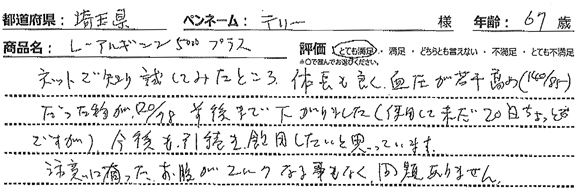 都道府県: 埼玉県 ペンネーム: テリー 様 年齢: 67 歳
商品名: L-アルギニン5000プラス 評価 とても満足・満足・どちらとも言えない・不満足・とても不満足
※○で囲んでお選びください。
ネットで知り試してみたところ、体長も良く、血圧が若干高め(140/85)
だった物が、120/78 前後まで下がりました(使用して未だ20日ちょっと
ですが) 今後も引続き飲用したいと思っています。
注意に有った、お腹がユルクなる事もなく、問題ありません。